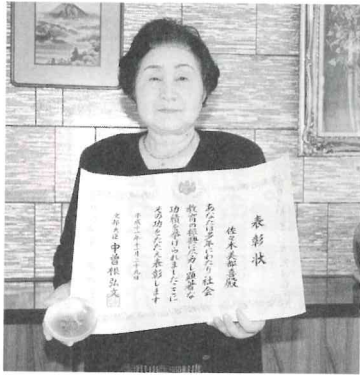 表彰状
佐々木美都喜殿
あなたは多年にわたり社会
教育の振興に尽力し顕著な
功績を挙げられましたここに
その功をたたえ表彰します
平成十一年十一月二十九日
文部大臣 中曽根弘文